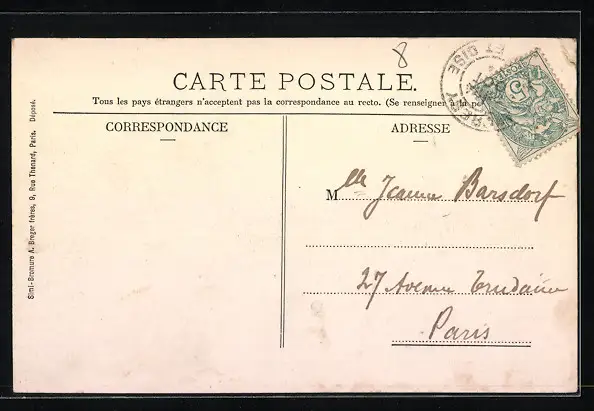 8
CARTE POSTALE.
Tous les pays étrangers n'acceptent pas la correspondance au recto. (Se renseigner à la po
CORRESPONDANCE
ADRESSE
Mlle Jeanne Barsdorf
27 Avenue Trudaine
Paris
Simi-Bromure A. Breger frères, 9, Rue Thenard, Paris. Déposé.
ET OISE